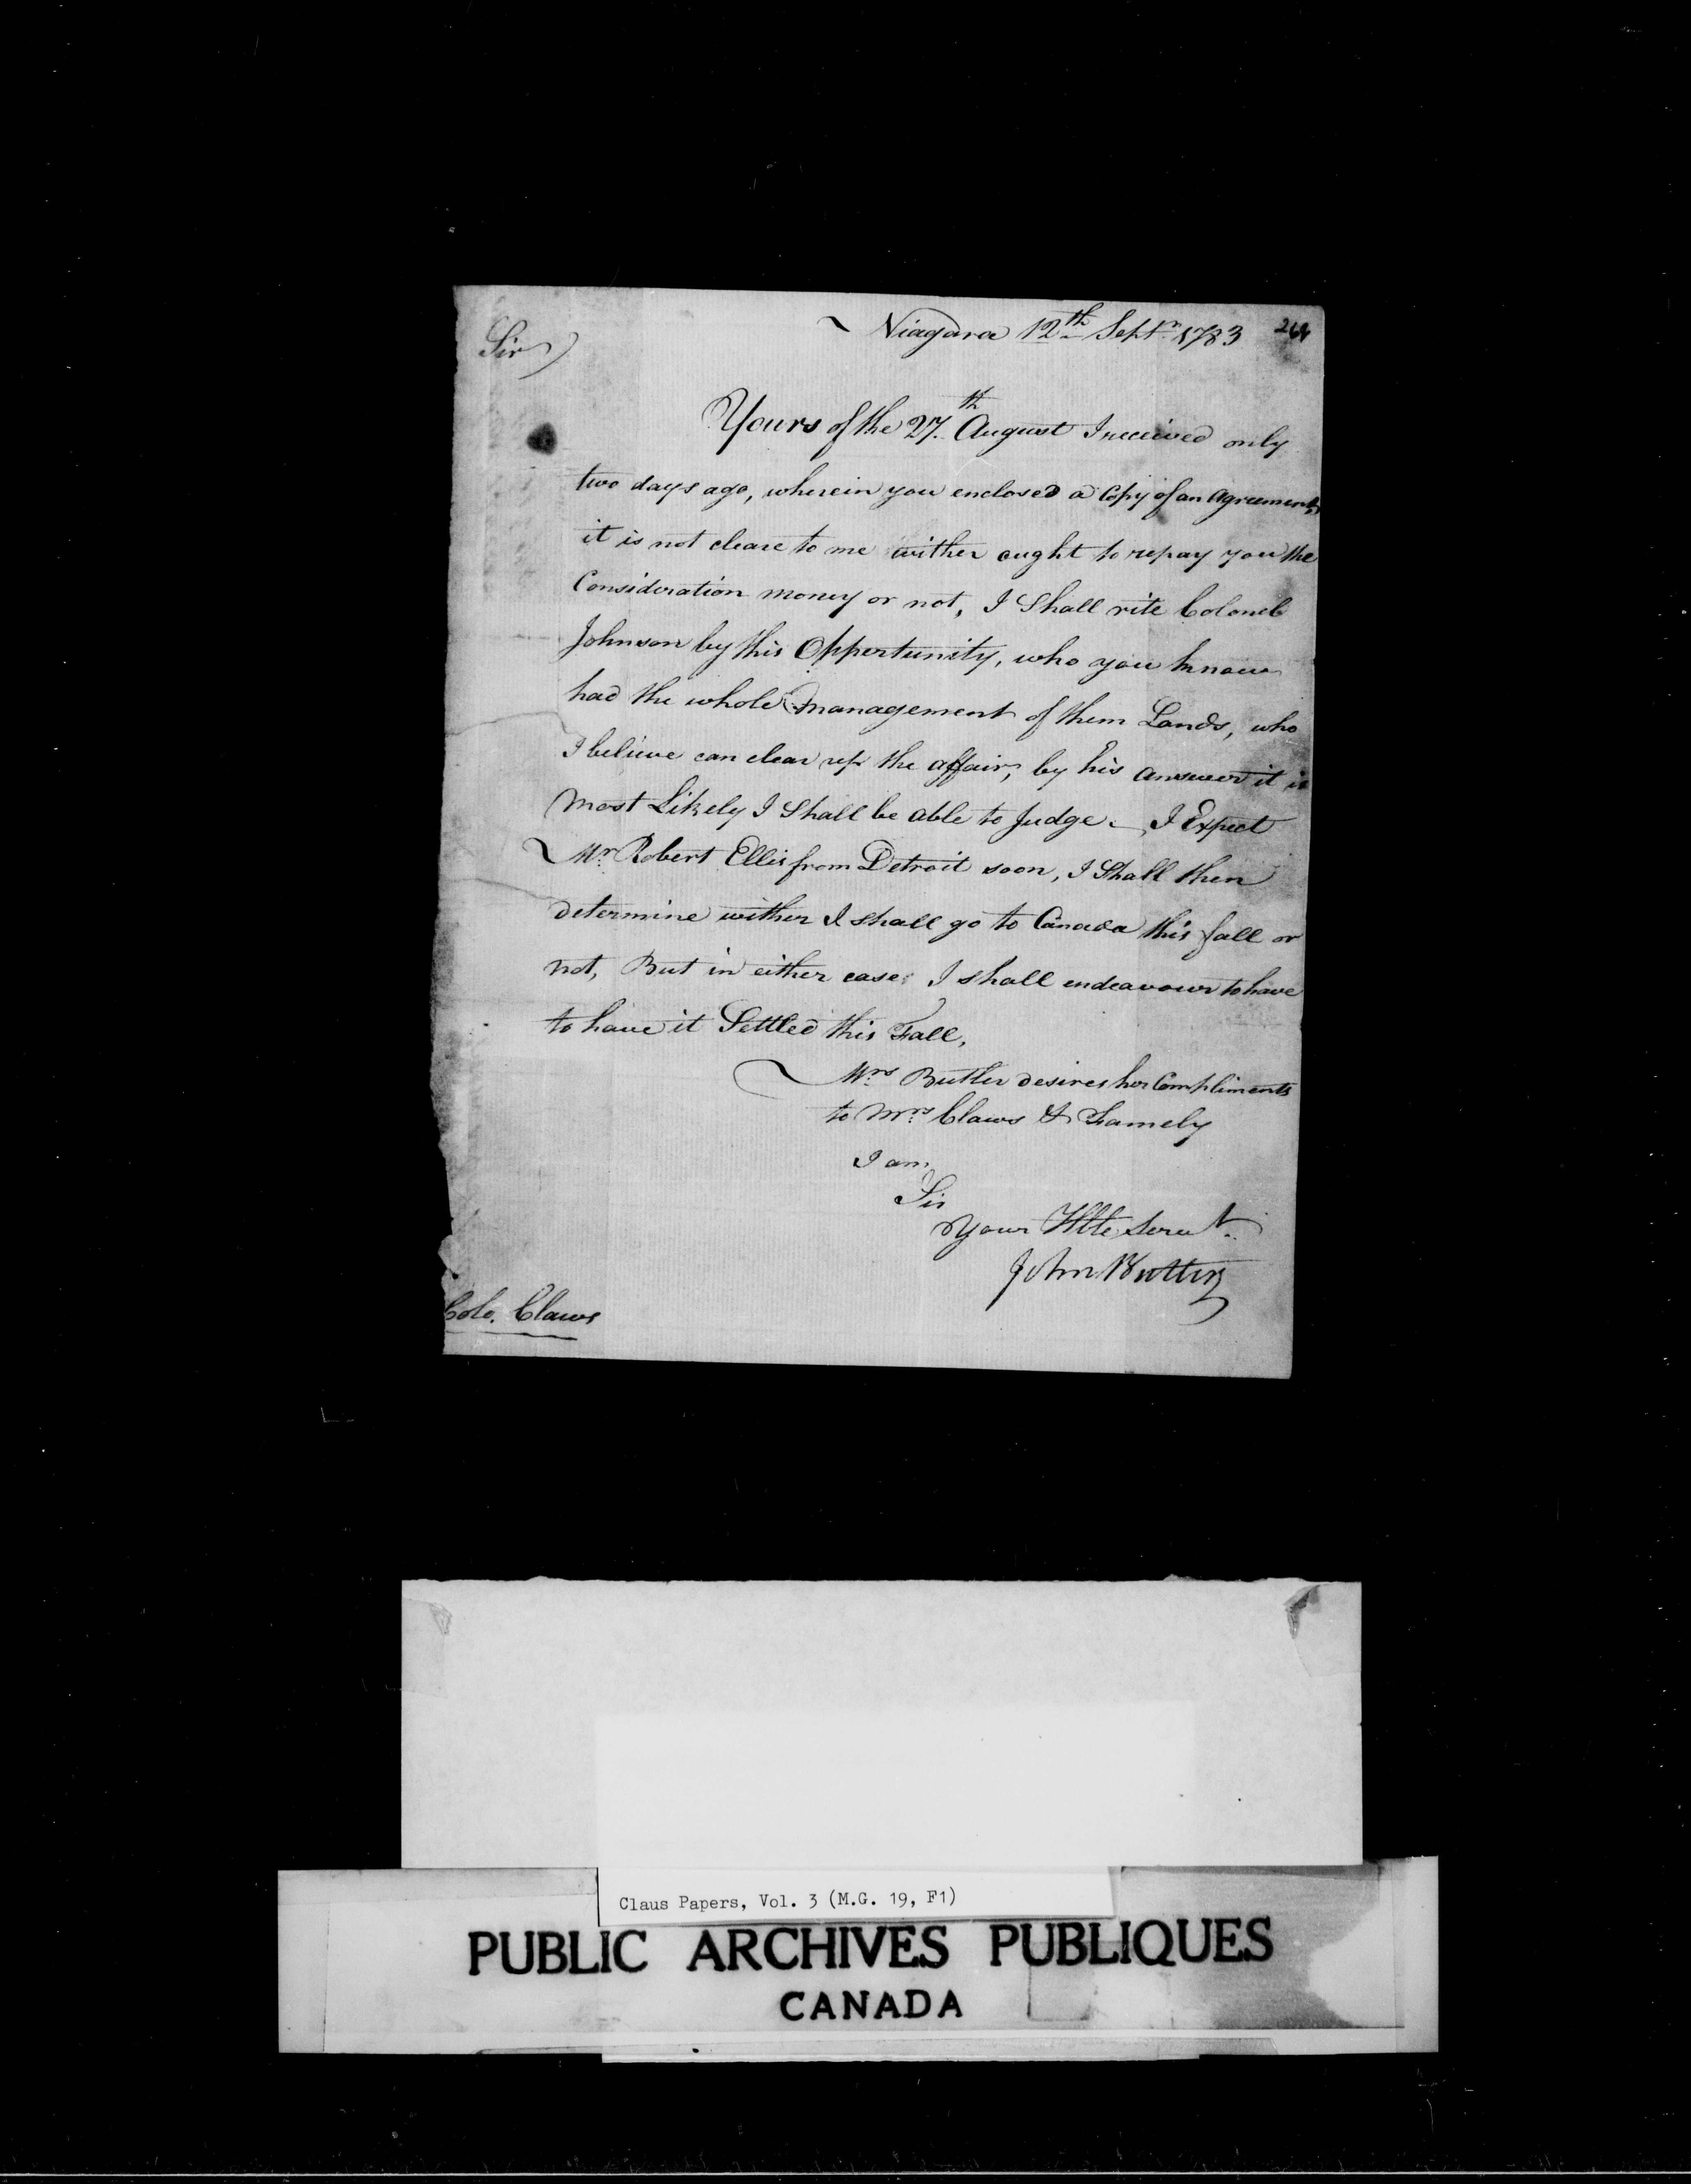 Niagara 12th Septr 1783
Sir
Yours of the 27th August I received only
two days ago, wherein you enclosed a Copy of an Agreement,
it is not cleare to me wither ought to repay you the
Consideration money or not, I Shall rite Colonel
Johnson by this Oppertunity, who you know
had the whole management of them Lands, who
I believe can clear up the affair, by his answer it is
Most Likely I Shall be able to Judge. I Expect
Mr Robert Ellis from Detroit soon, I Shall then
determine wither I shall go to Canada this fall or
not, But in either case I shall endeavour to have
to have it Settled this Fall,
Mrs Butler desires her Compliments
to Mrs Claws & Famely
I am
Sir
Your Hble Servt.
John Butler
Colo. Claws
Claus Papers, Vol. 3 (M.G. 19, F1)
PUBLIC ARCHIVES PUBLIQUES
CANADA